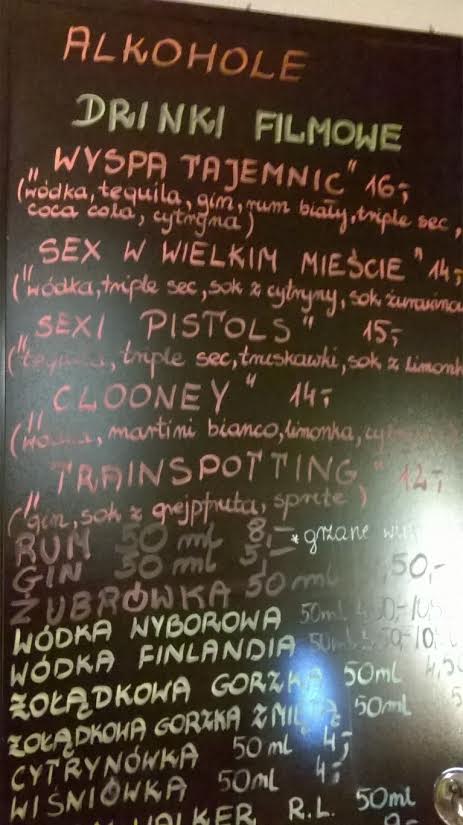 ALKOHOLE
DRINKI FILMOWE
"WYSPA TAJEMNIC" 16,-
(wódka, tequila, gin, rum biały, triple sec,
coca cola, cytryna)
"SEX W WIELKIM MIEŚCIE" 14,-
(wódka, triple sec, sok z cytryny, sok
"SEXI PISTOLS" 15,-
(tequila, triple sec, truskawki, sok z
"CLOONEY" 14,-
(wódka, martini bianco, limonka,
"TRAINSPOTTING" 12,-
(gin, sok z grejpfruta, sprite)
RUM 50 ml 8,- *grzane
GIN 50 ml 5,-
ŻUBRÓWKA 50 ml ,50,-
WÓDKA WYBOROWA 50ml
WÓDKA FINLANDIA 50ml
ŻOŁĄDKOWA GORZKA 50ml
ŻOŁĄDKOWA GORZKA Z 50ml
CYTRYNÓWKA 50 ml 4,-
WIŚNIÓWKA 50ml 4,-
WALKER R.L. 50ml